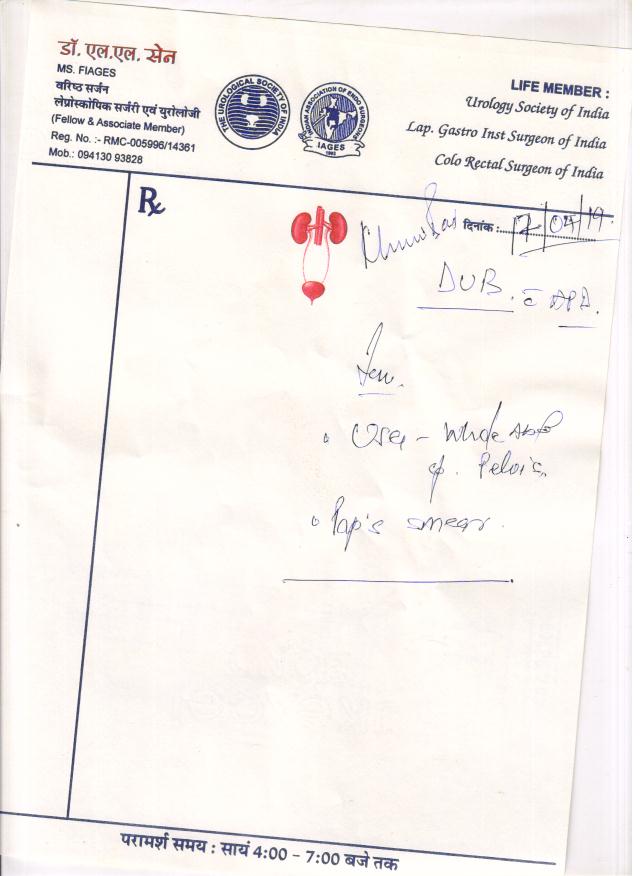 डॉ. एल.एल. सेन
MS. FIAGES
वरिष्ठ सर्जन
लेप्रोस्कोपिक सर्जरी एवं युरोलोजी
(Fellow & Associate Member)
Reg. No. :- RMC-005996/14361
Mob.: 094130 93828
THE UROLOGICAL SOCIETY OF INDIA
INDIAN ASSOCIATION OF ENDO SURGEONS
IAGES
LIFE MEMBER :
Urology Society of India
Lap. Gastro Inst Surgeon of India
Colo Rectal Surgeon of India
Rx
दिनांक :
DUB.
USG - Whole Abd
Pelvis.
Pap's smear.
परामर्श समय : सायं 4:00 - 7:00 बजे तक